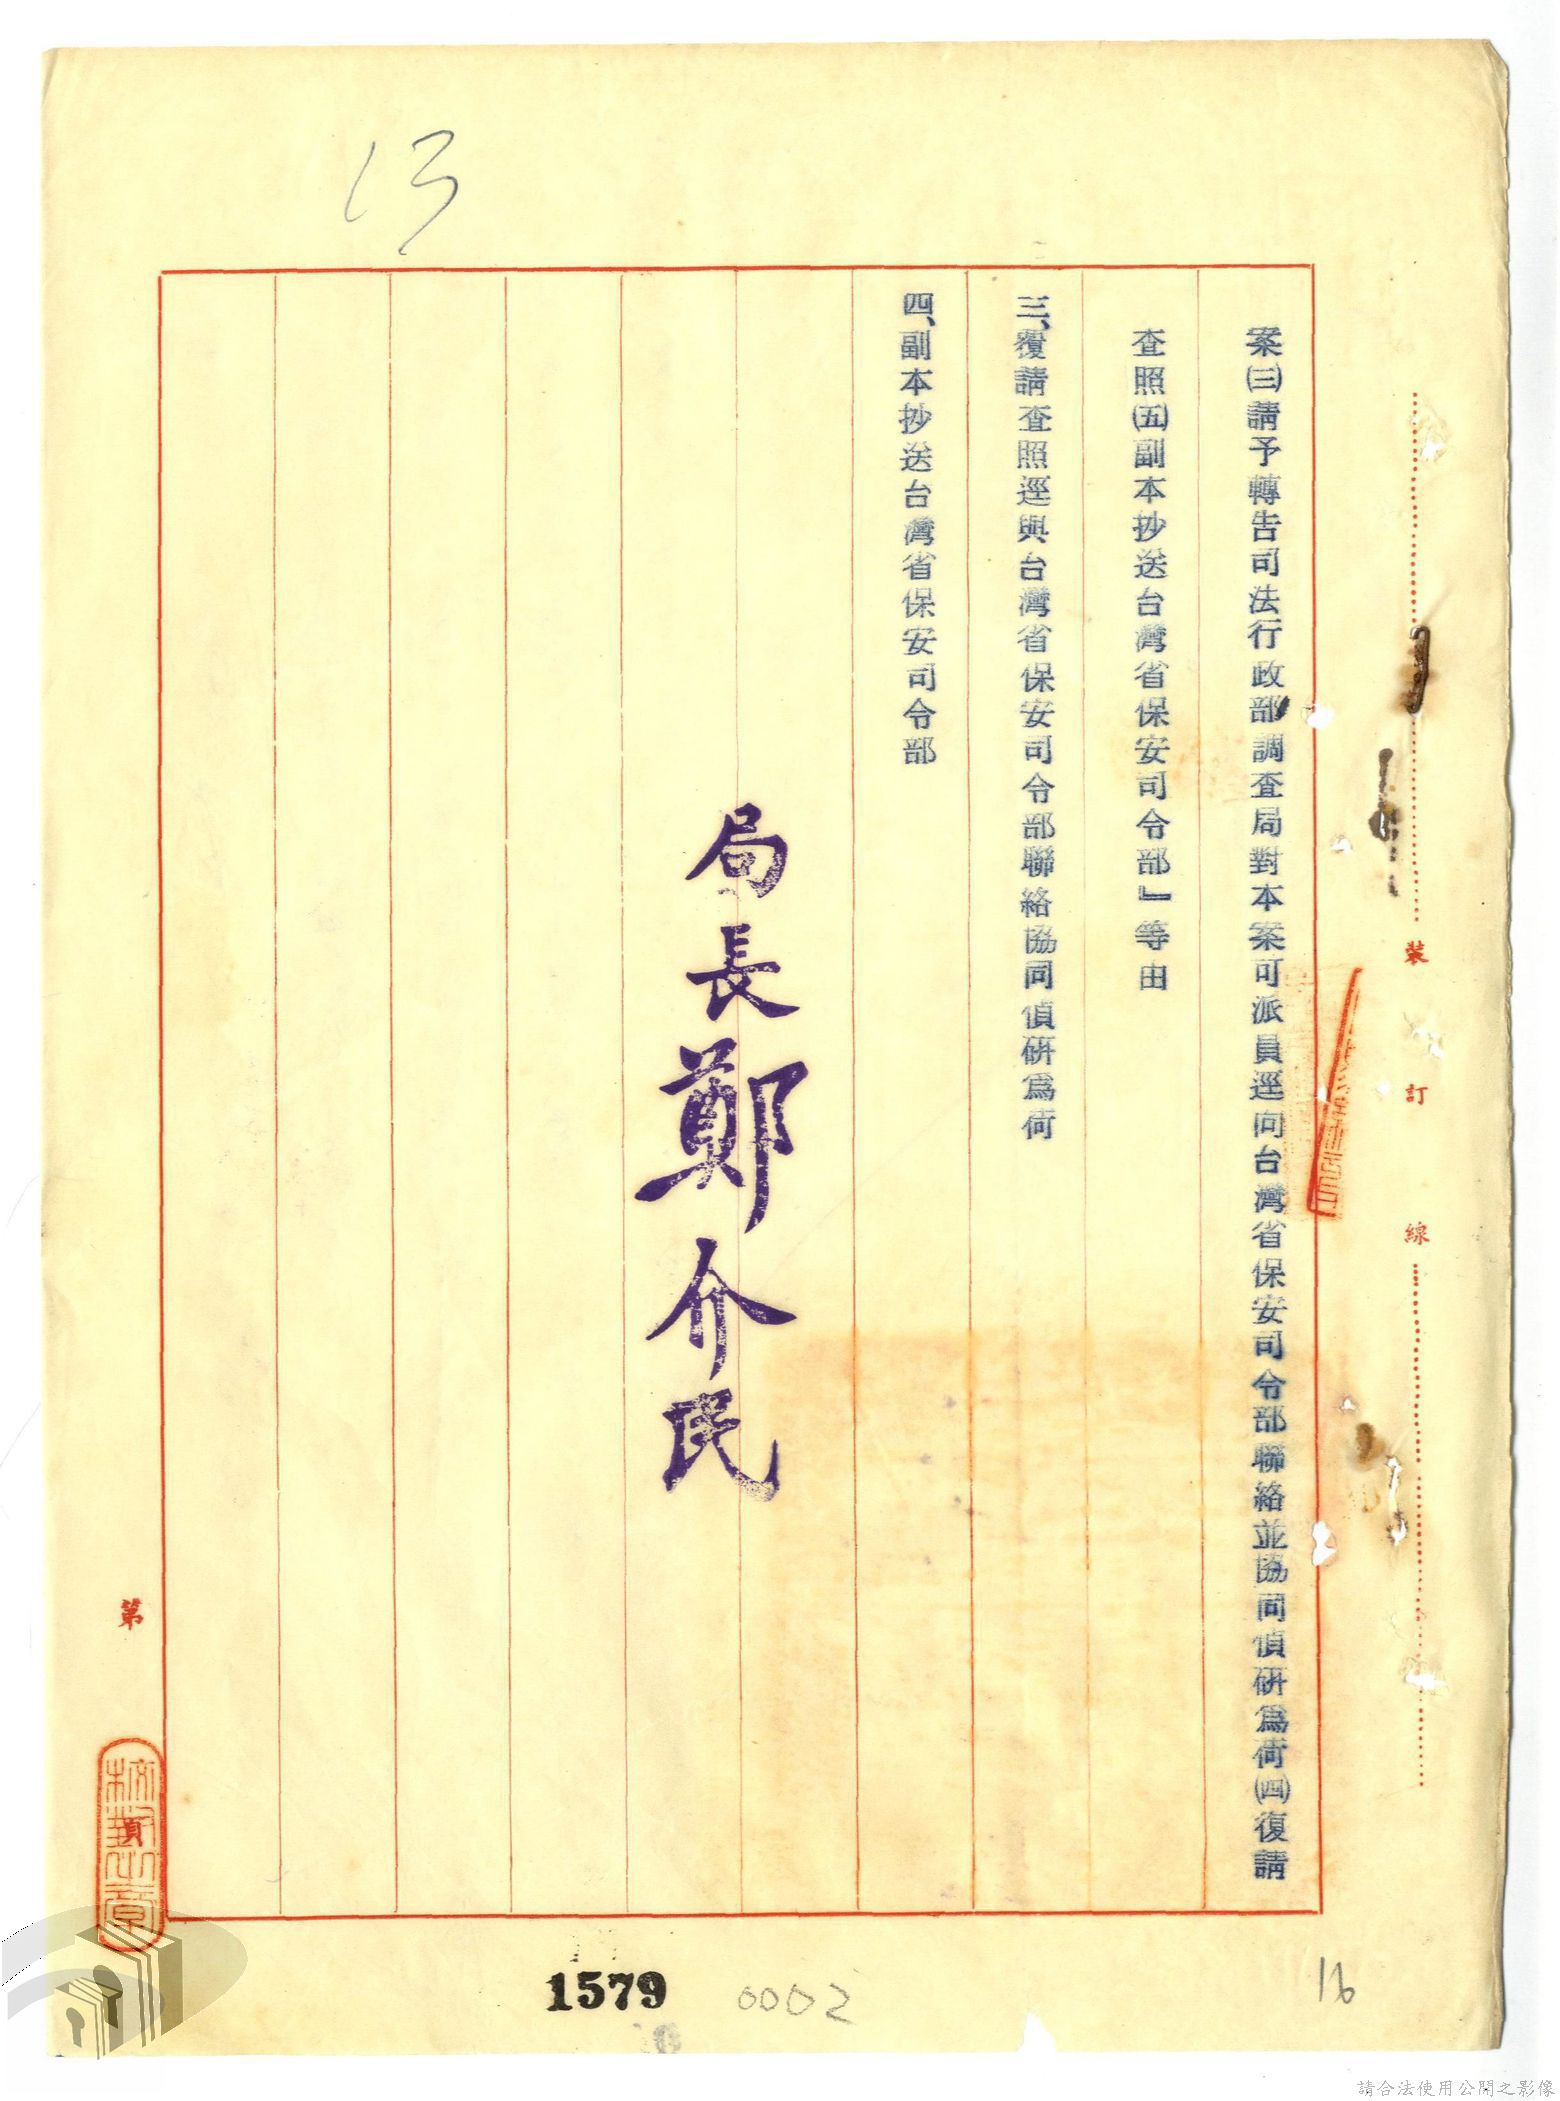 13
案㈢請予轉告司法行政部調查局對本案可派員逕向台灣省保安司令部聯絡並協同偵研為荷㈣復請
查照㈤副本抄送台灣省保安司令部』等由
三、覆請查照逕與台灣省保安司令部聯絡協同偵研為荷
四、副本抄送台灣省保安司令部
局長鄭介民
裝訂線
第
校對之章
1579
0002
16
請合法使用公開之影像